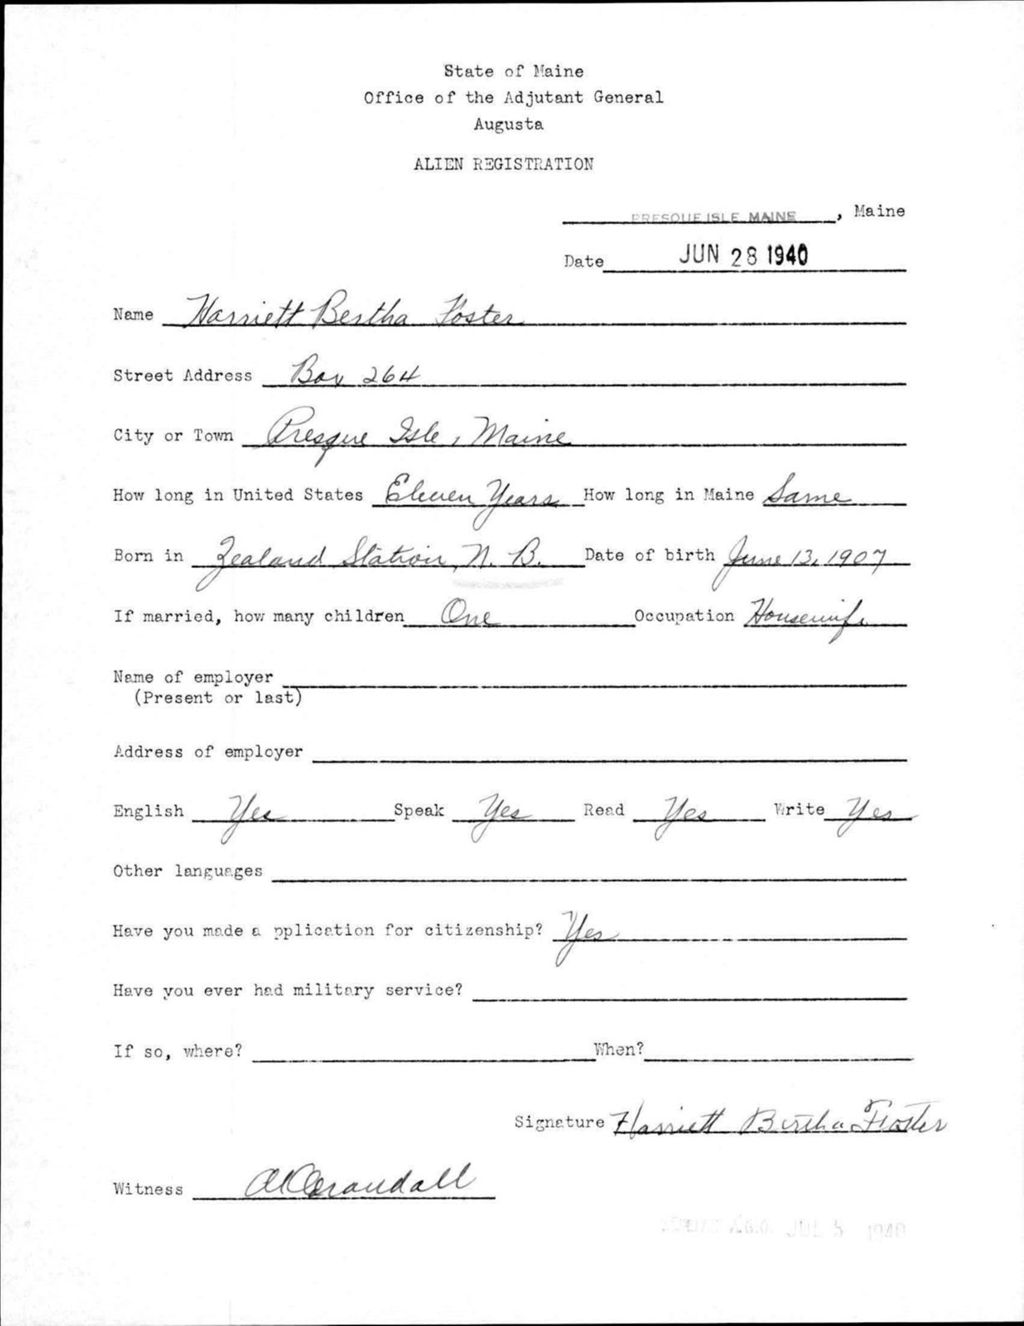 State of Maine
Office of the Adjutant General
Augusta
ALIEN REGISTRATION
PRESQUE ISLE MAINE, Maine
Date JUN 28 1940
Name Harriett Bertha Foster
Street Address Box 264
City or Town Presque Isle, Maine
How long in United States Eleven Years How long in Maine Same
Born in Zealand Station, N. B. Date of birth June 13, 1907
If married, how many children One Occupation Housewife
Name of employer
(Present or last)
Address of employer
English Yes Speak Yes Read Yes Write Yes
Other languages
Have you made a pplication for citizenship? Yes
Have you ever had military service?
If so, where? When?
Signature Harriett Bertha Foster
Witness Crandall
A.G.O. JUL 5 1940